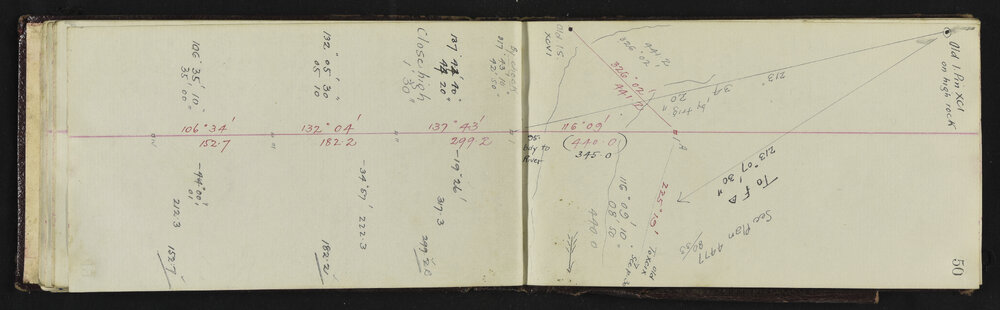 106° 35' 10"
35' 00"
106° 34'
152.7
-44° 00'
01'
212.3
152.7
132° 05' 30"
05' 10
132° 04'
182.2
-34° 57'
222.3
182.21
137° 20"
Close high
1' 30"
137° 43'
299.2
-19° 26'
317.3
317. 43. 10"
42. 50
Old I.S.
XCVI
326° 02'
441.2
326° 02'
441.2
34° 20"
by trig
213
116° 09'
(440.0)
345.0
bdy to
River
116° 09' 10"
08' 50
440.0
225° 19'
To XCIX
Old
A
213° 07' 30"
To F
See Plan 4977
Old I. Pin XCI
on high rock
50